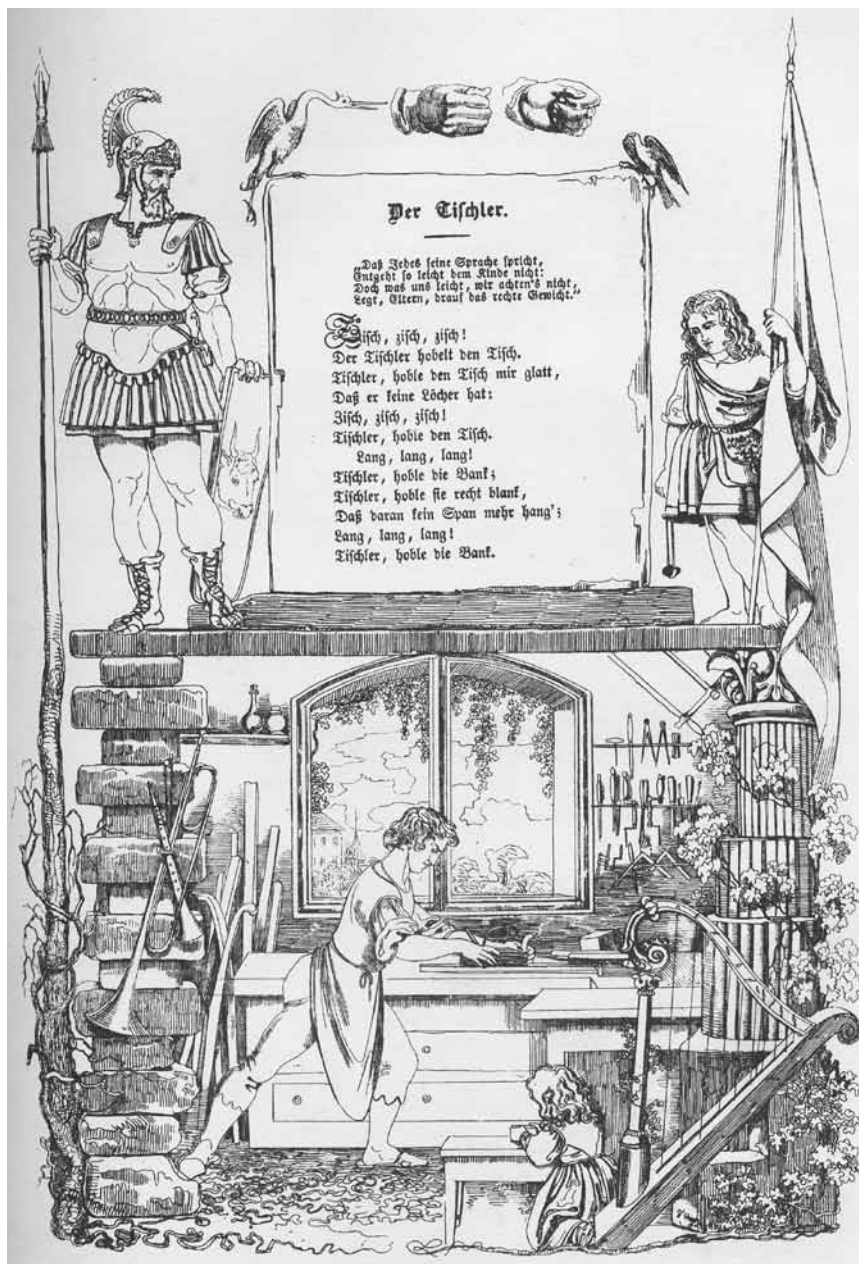 Der Tischler.
„Daß Jedes seine Sprache spricht,
Entgeht so leicht dem Kinde nicht:
Doch was uns leicht, wir achten's nicht,
Legt, Eltern, drauf das rechte Gewicht.“
Zisch, zisch, zisch!
Der Tischler hobelt den Tisch.
Tischler, hoble den Tisch mir glatt,
Daß er keine Löcher hat:
Zisch, zisch, zisch!
Tischler, hoble den Tisch.
Lang, lang, lang!
Tischler, hoble die Bank;
Tischler, hoble sie recht blank,
Daß daran kein Span mehr hang';
Lang, lang, lang!
Tischler, hoble die Bank.